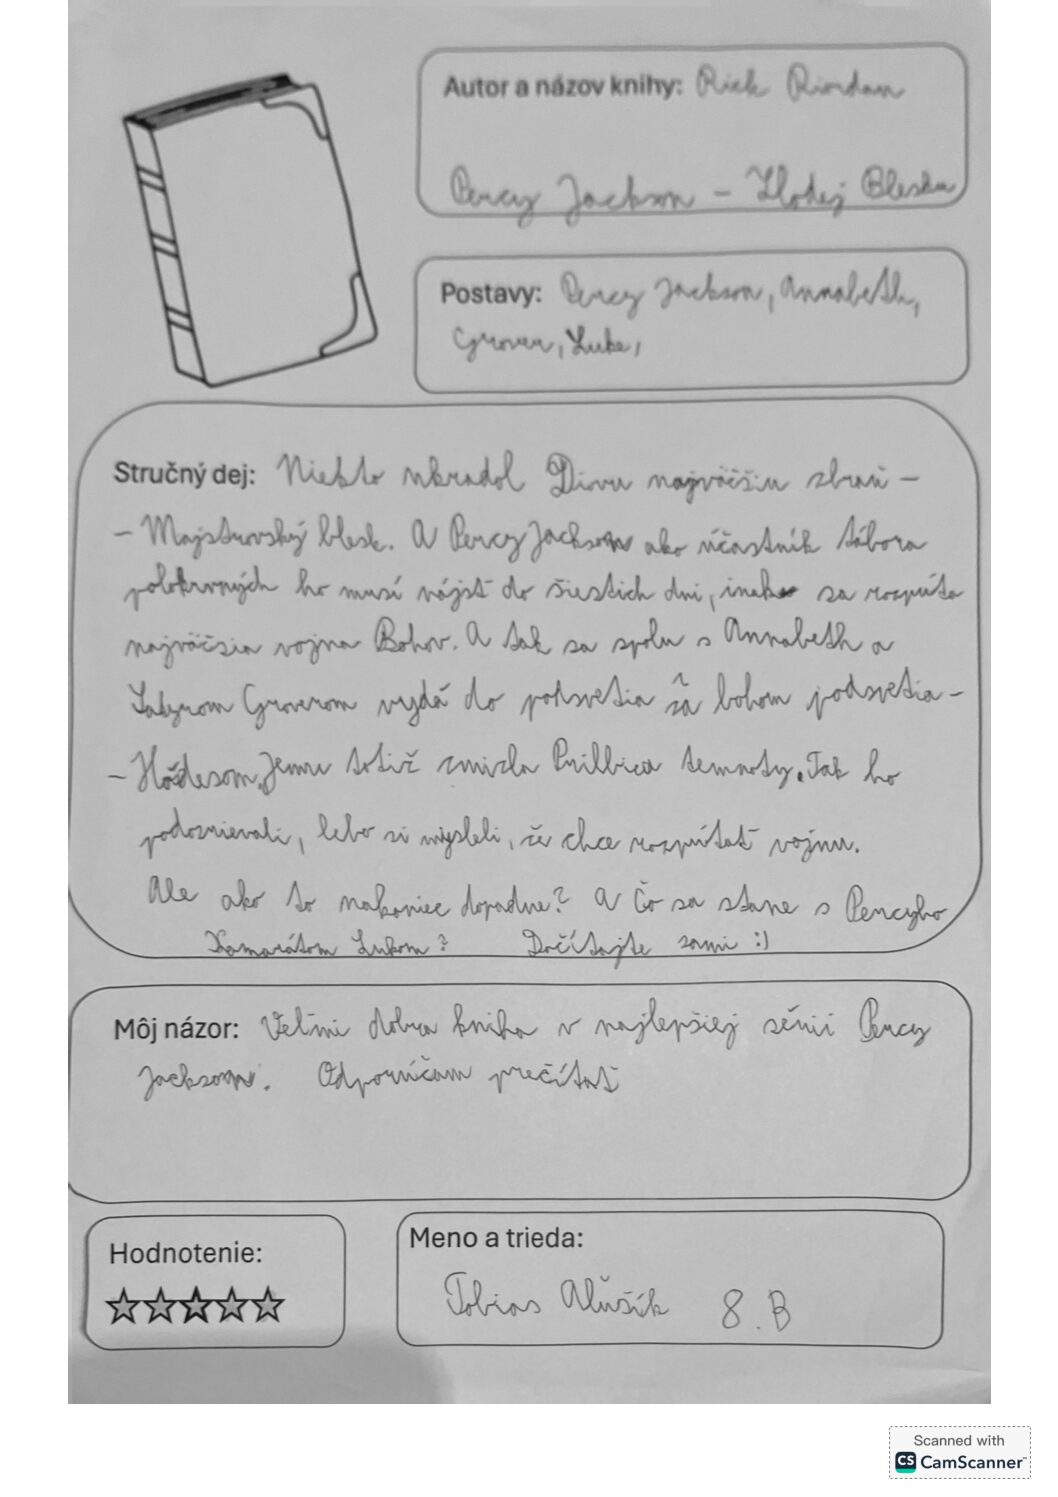 Autor a názov knihy: Rick Riordan
Percy Jackson - Zlodej Blesku
Postavy: Percy Jackson, Annabeth,
Grover, Luke,
Stručný dej: Niekto ukradol Diovu najväčšiu zbraň -
- Majstrovský blesk. A Percy Jackson ako účastník tábora
polokrvných ho musí nájsť do šiestich dni, inak sa rozpúta
najväčsia vojna Bohov. A tak sa spolu s Annabeth a
Satyrom Groverom vydá do podsvetia za bohom podsvetia -
- Hádesom. Jemu totiž zmizla Prilbica temnoty. Tak ho
podozrievali, lebo si mysleli, že chce rozpútať vojnu.
Ale ako to nakoniec dopadne? A Čo sa stane s Percyho
Kamarátom Lukom? Dočítajte sami :)
Môj názor: Veľmi dobra kniha v najlepšiej sérii Percy
Jackson. Odporúčam prečítať
Hodnotenie:
Meno a trieda:
Tobias Alušík 8.B
Scanned with
CS CamScanner